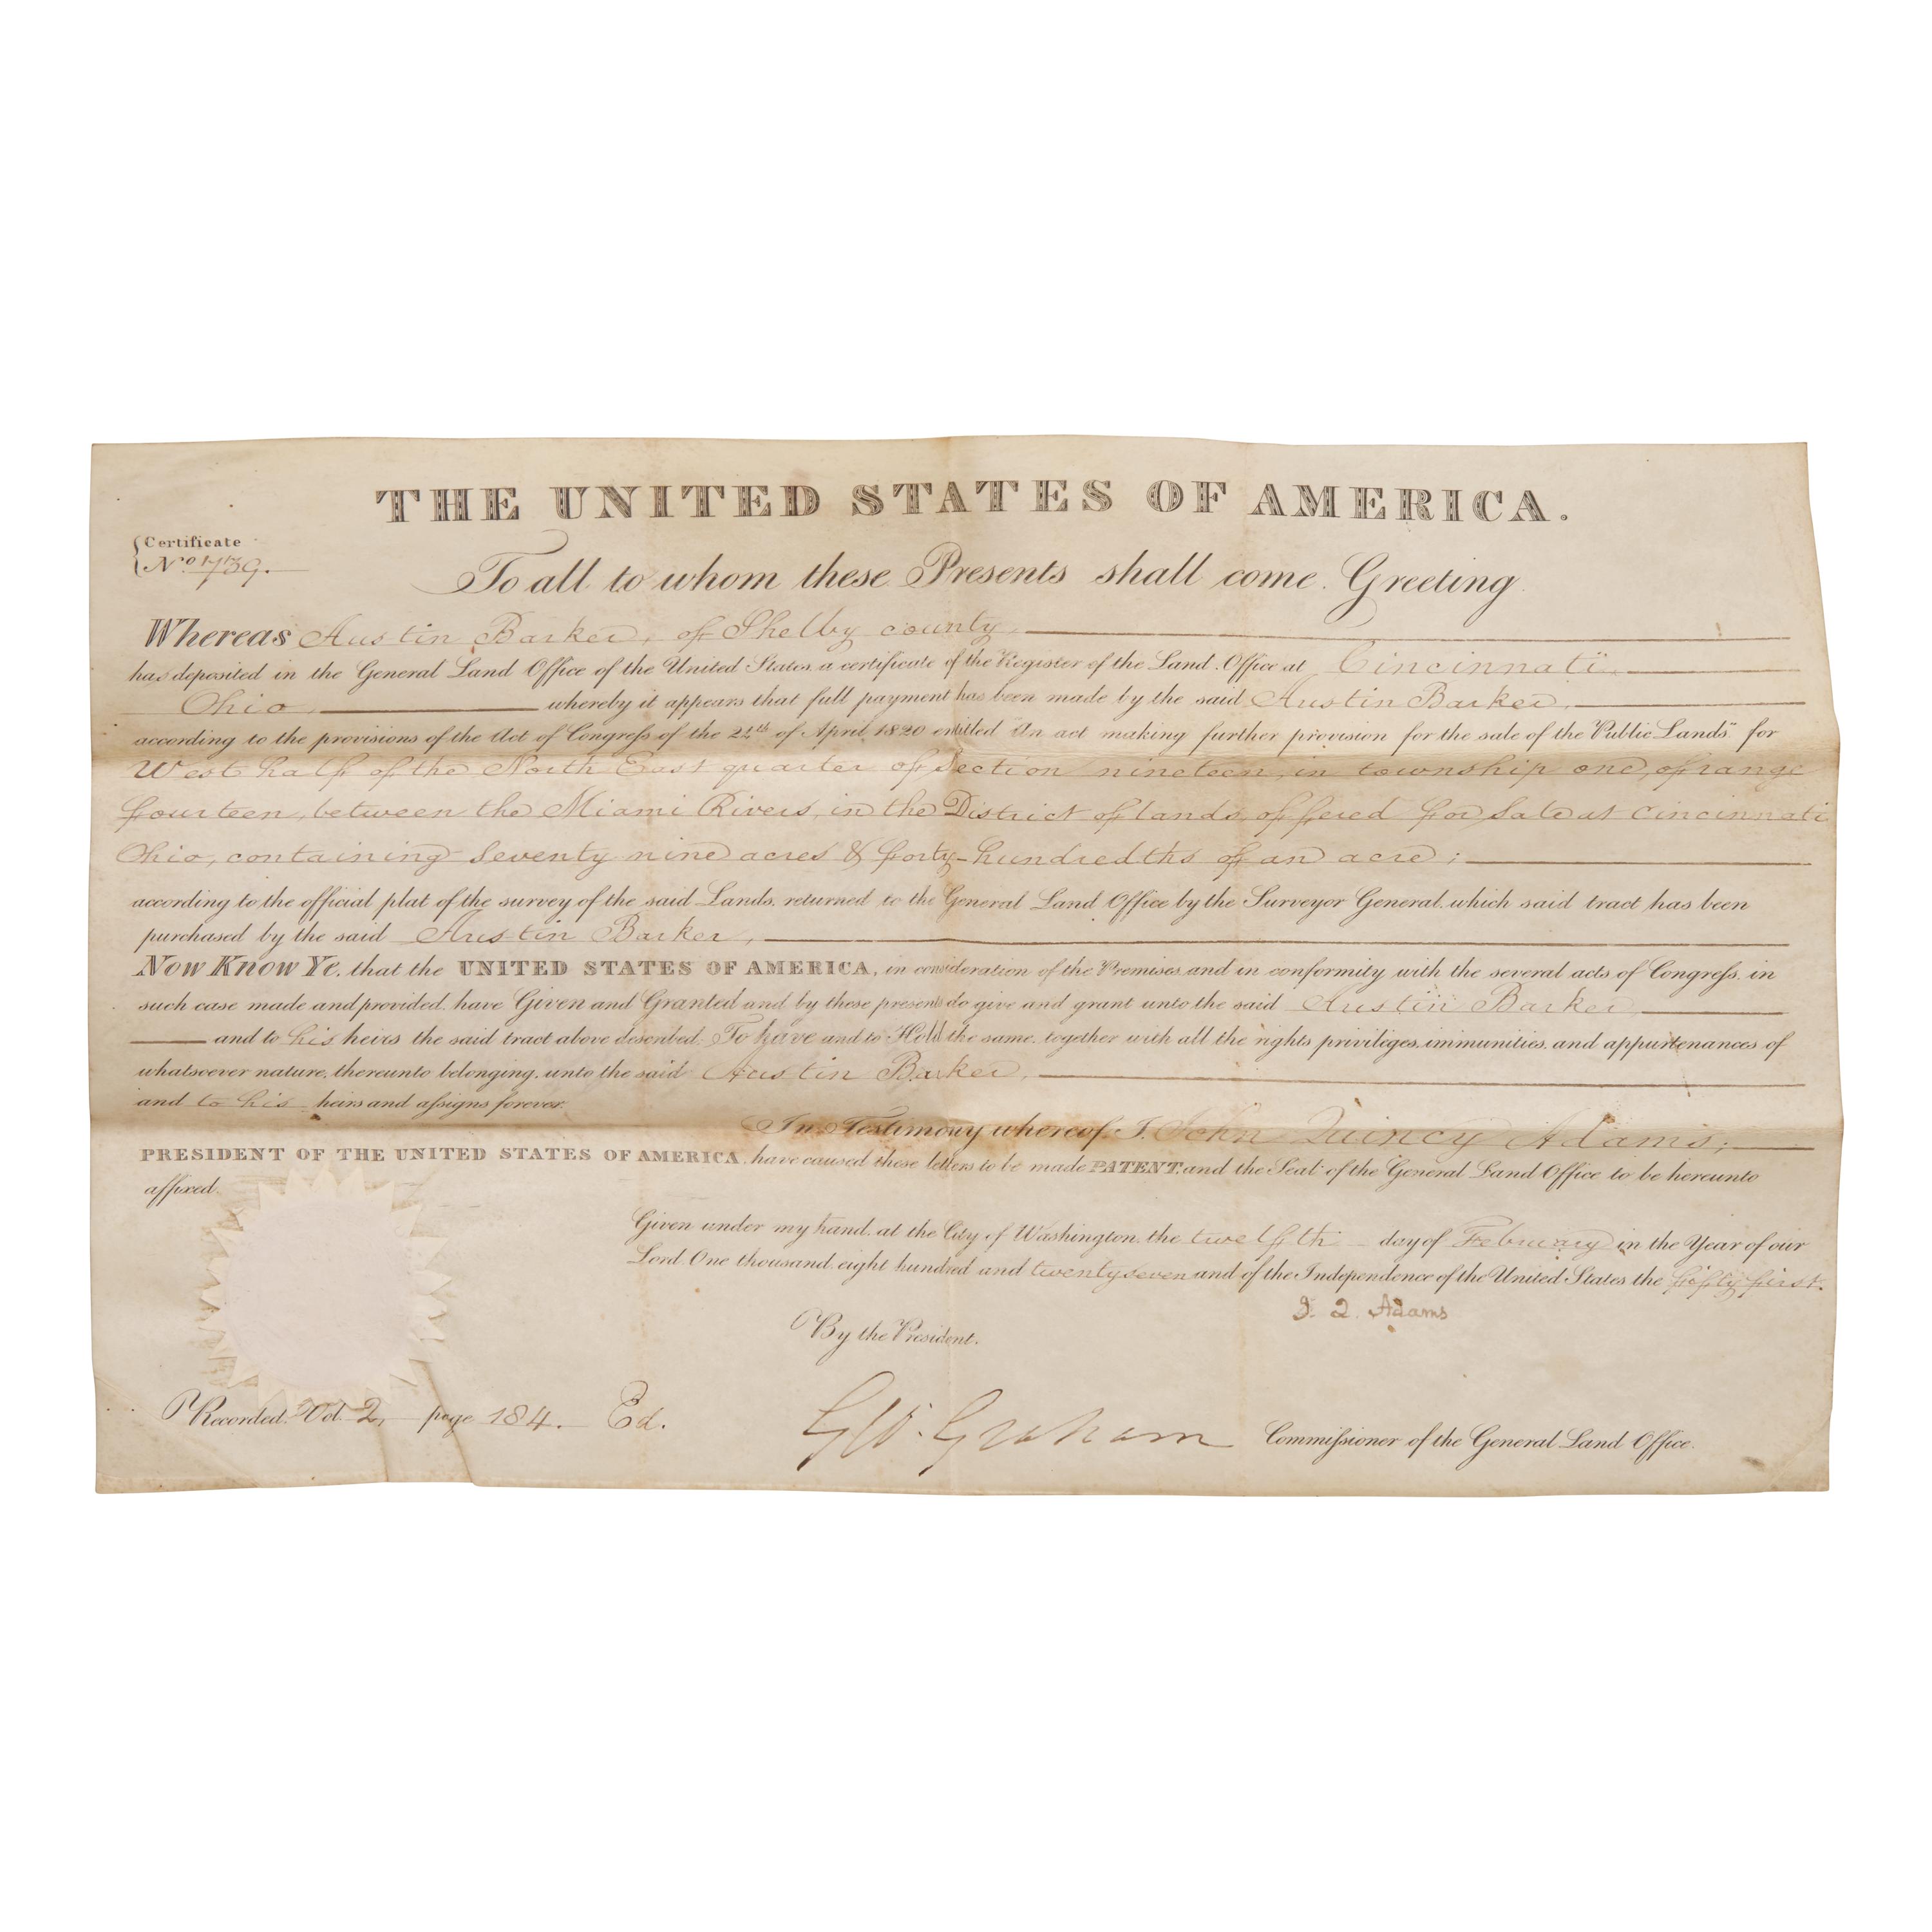 THE UNITED STATES OF AMERICA.
Certificate
No. 1739.
To all to whom these Presents shall come. Greeting.
Whereas Austin Barker, of Shelby county,
has deposited in the General Land Office of the United States, a certificate of the Register of the Land Office at Cincinnati
Ohio, whereby it appears that full payment has been made by the said Austin Barker,
according to the provisions of the Act of Congress of the 24th of April 1820 entitled "An act making further provision for the sale of the Public Lands" for
West half of the North East quarter of Section nineteen, in township one, of range
fourteen, between the Miami Rivers, in the District of lands offered for Sale at Cincinnati
Ohio, containing Seventy nine acres & forty-hundredths of an acre;
according to the official plat of the survey of the said Lands, returned to the General Land Office by the Surveyor General, which said tract has been
purchased by the said Austin Barker,
Now Know Ye, that the UNITED STATES OF AMERICA, in consideration of the Premises, and in conformity with the several acts of Congress, in
such case made and provided, have Given and Granted and by these presents do give and grant unto the said Austin Barker,
and to his heirs the said tract above described; To have and to Hold the same, together with all the rights privileges, immunities, and appurtenances of
whatsoever nature, thereunto belonging, unto the said Austin Barker,
and to his heirs and assigns forever.
In Testimony whereof, I, John Quincy Adams;
PRESIDENT OF THE UNITED STATES OF AMERICA, have caused these letters to be made PATENT, and the Seal of the General Land Office to be hereunto
affixed.
Given under my hand, at the City of Washington, the twelfth day of February in the Year of our
Lord One thousand eight hundred and twenty seven and of the Independence of the United States the fifty first.
J. Q. Adams
By the President.
Recorded. Vol. 2, page 184. Ed.
G W. Graham Commissioner of the General Land Office.